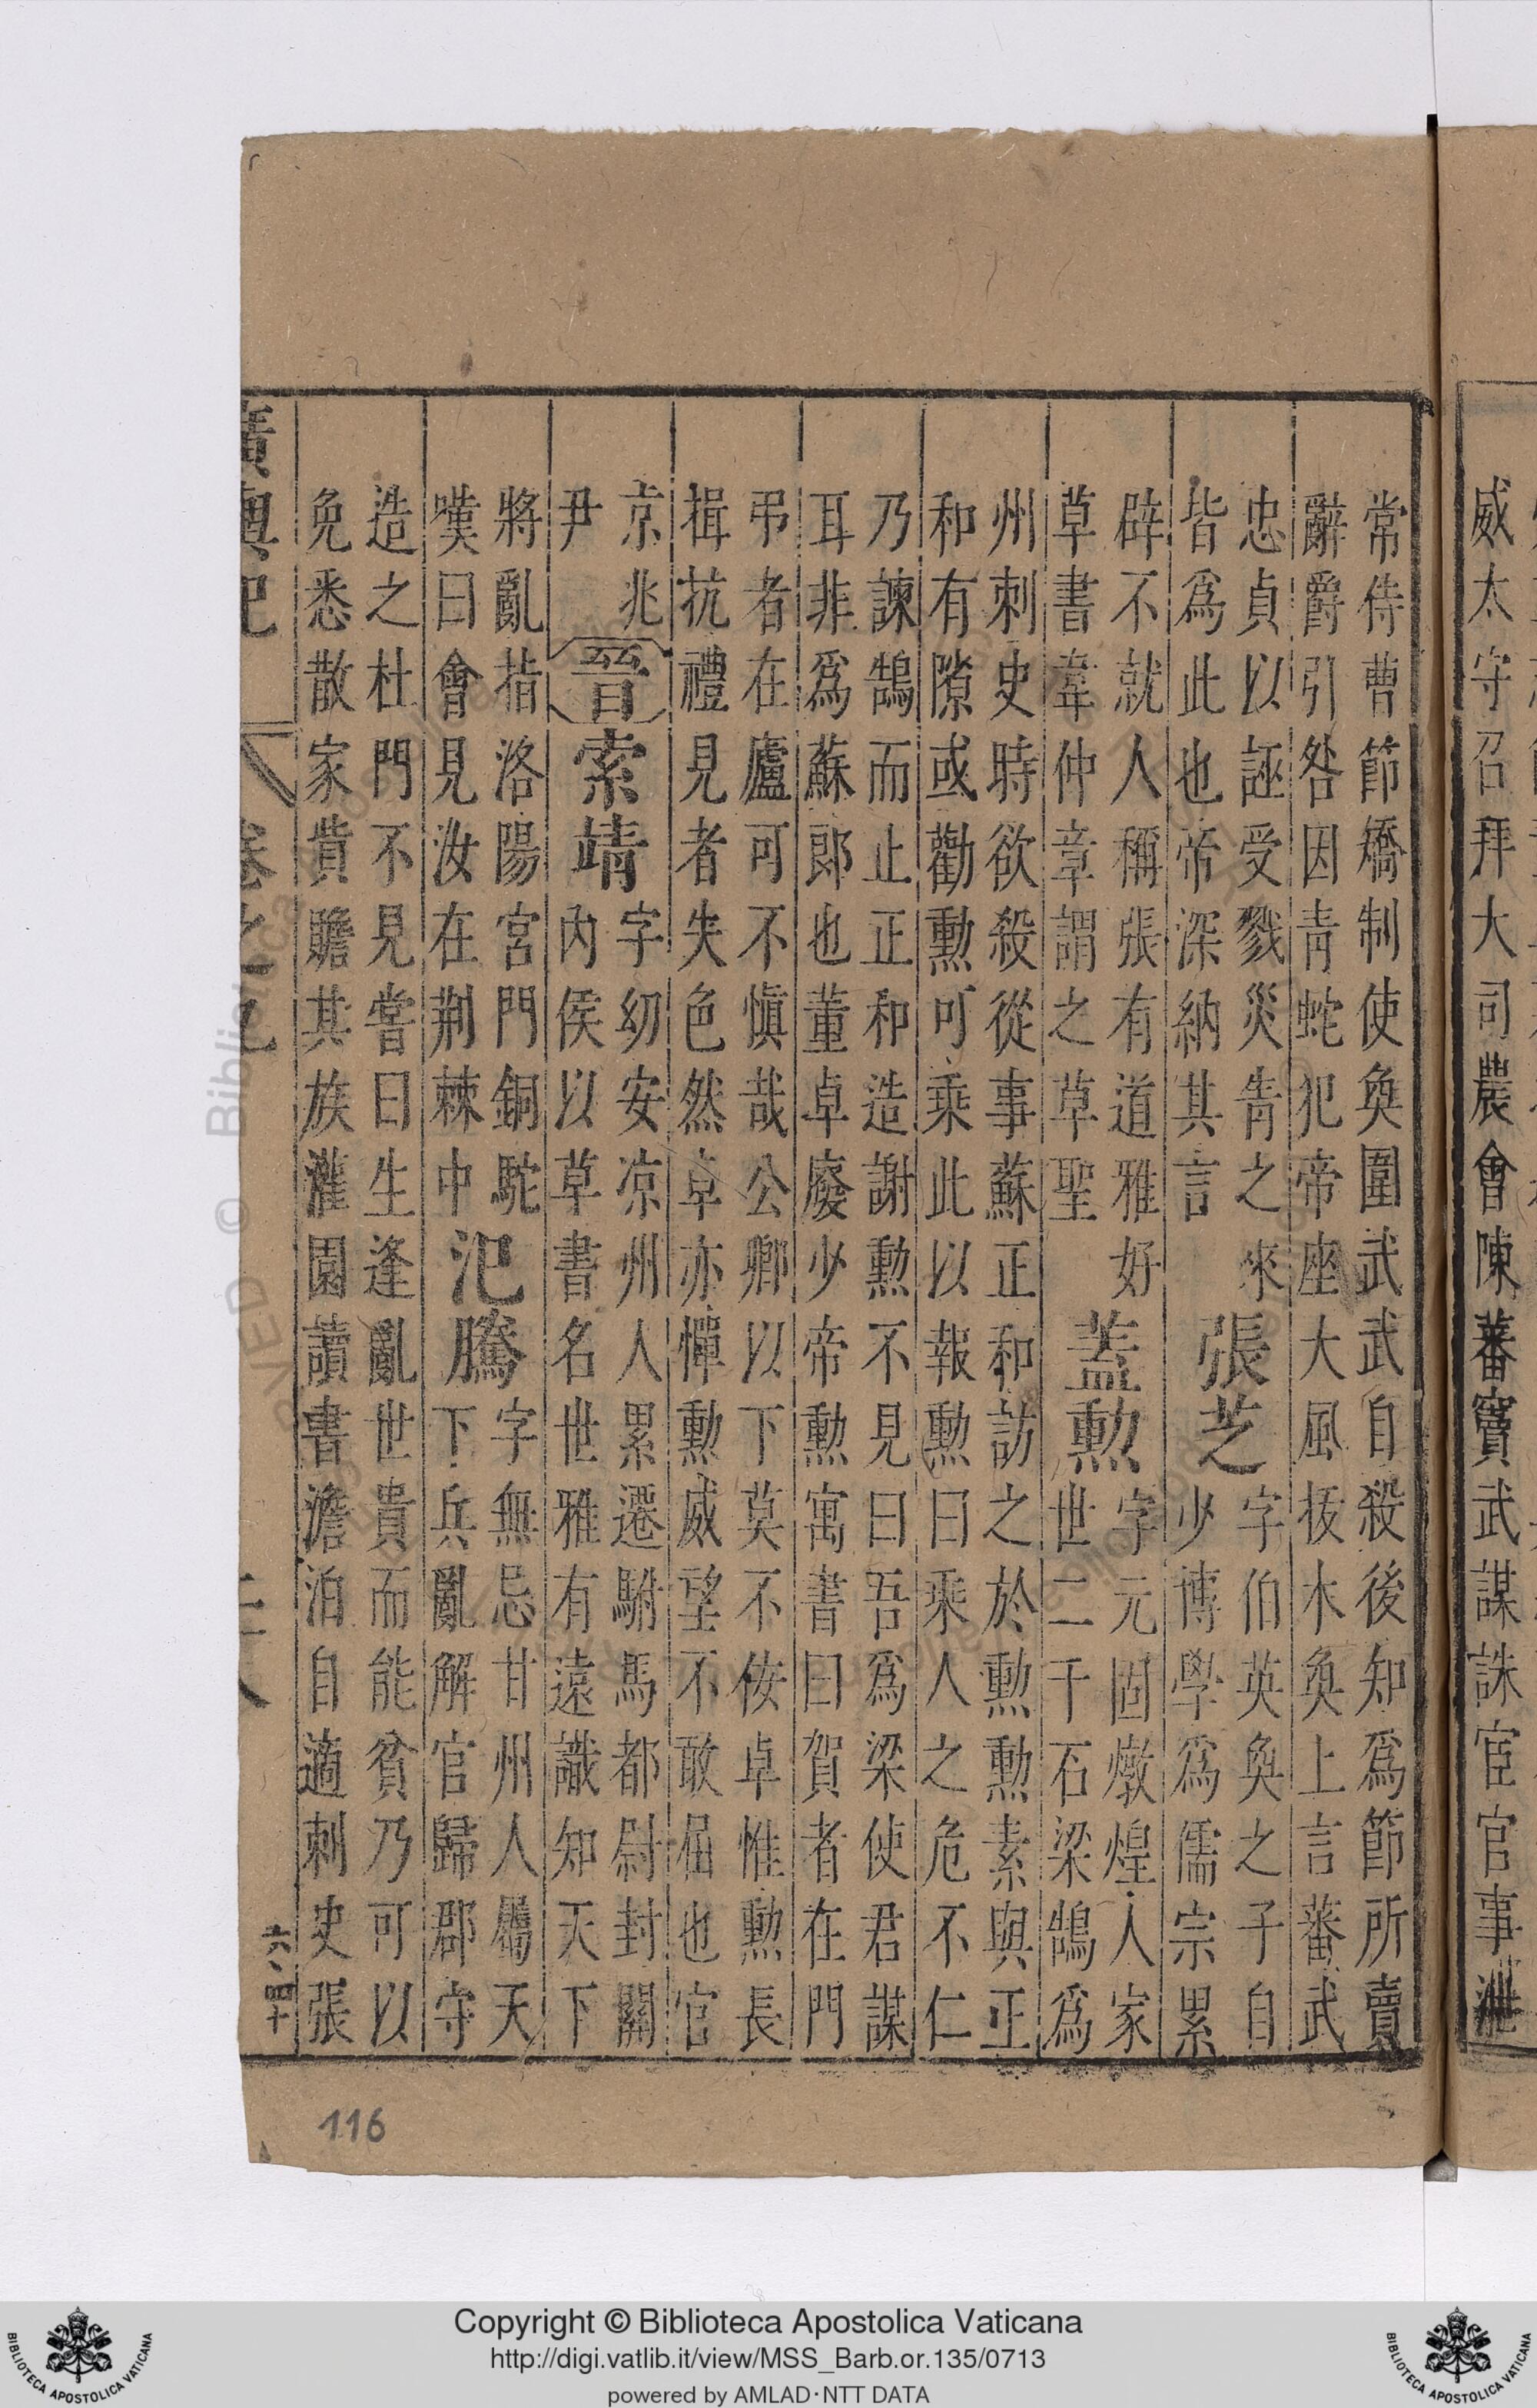 威太守召拜大司農會陳蕃竇武謀誅宦官事泄
常侍曹節矯制使奐圍武武自殺後知爲節所賣
辭爵引咎因青蛇犯帝座大風拔木奐上言蕃武
忠貞以誣受戮災眚之來
皆爲此也帝深納其言
張芝
字伯英奐之子自
少博學爲儒宗累
辟不就人稱張有道雅好
草書韋仲章謂之草聖
蓋勲
字元固燉煌人家
世二千石梁鵠爲
州刺史時欲殺從事蘇正和訪之於勲勲素與正
和有隙或勸勲可乘此以報勲曰乘人之危不仁
乃諫鵠而止正和造謝勲不見曰吾爲梁使君謀
耳非爲蘇郎也董卓廢少帝勲寓書曰賀者在門
弔者在廬可不愼哉公卿以下莫不侫卓惟勲長
揖抗禮見者失色然卓亦憚勲威望不敢屈也官
京兆
尹
晉
索靖
字幼安凉州人累遷駙馬都尉封關
內侯以草書名世雅有遠識知天下
將亂指洛陽宮門銅駝
嘆曰會見汝在荆棘中
氾騰
字無忌甘州人屬天
下兵亂解官歸郡守
造之杜門不見嘗曰生逢亂世貴而能貧乃可以
免悉散家貲贍其族灌園讀書澹泊自適刺史張
廣輿記
卷之
六四十
116
Copyright © Biblioteca Apostolica Vaticana
http://digi.vatlib.it/view/MSS_Barb.or.135/0713
powered by AMLAD·NTT DATA
BIBLIOTECA APOSTOLICA VATICANA
BIBLIOTECA APOSTOLICA VATICANA